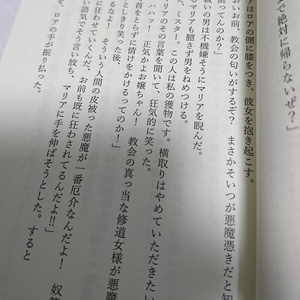 で絶対に帰わないぜ？」
はロアの側に膝をつき、彼女を抱き起こす。
おいお前、教会の匂いがするぞ？　まさかそいつが悪魔憑きだと知
ってんのか？」
い男は不機嫌そうにマリアを睨んだ。
マリアも臆さず男をねめつける。
、ミスター。この人は私の獲物です。横取りはやめていただきたい
マリアのその言葉を聞いて、狂気的に笑った。
ハッハ！　正気かよお嬢ちゃん！　教会の真っ当な修道女様が悪魔
とをもらずに情けをかけるってのか！」
としきり笑った後、
そういう人間の皮被った悪魔が一番厄介なんだよ！
に狂わせていくんだ、お前も既に狂わされてるんだよ！！」
い語気でそう言い放ち、マリアに手を伸ばそうとした。すると
、ロアの手が振り払った。